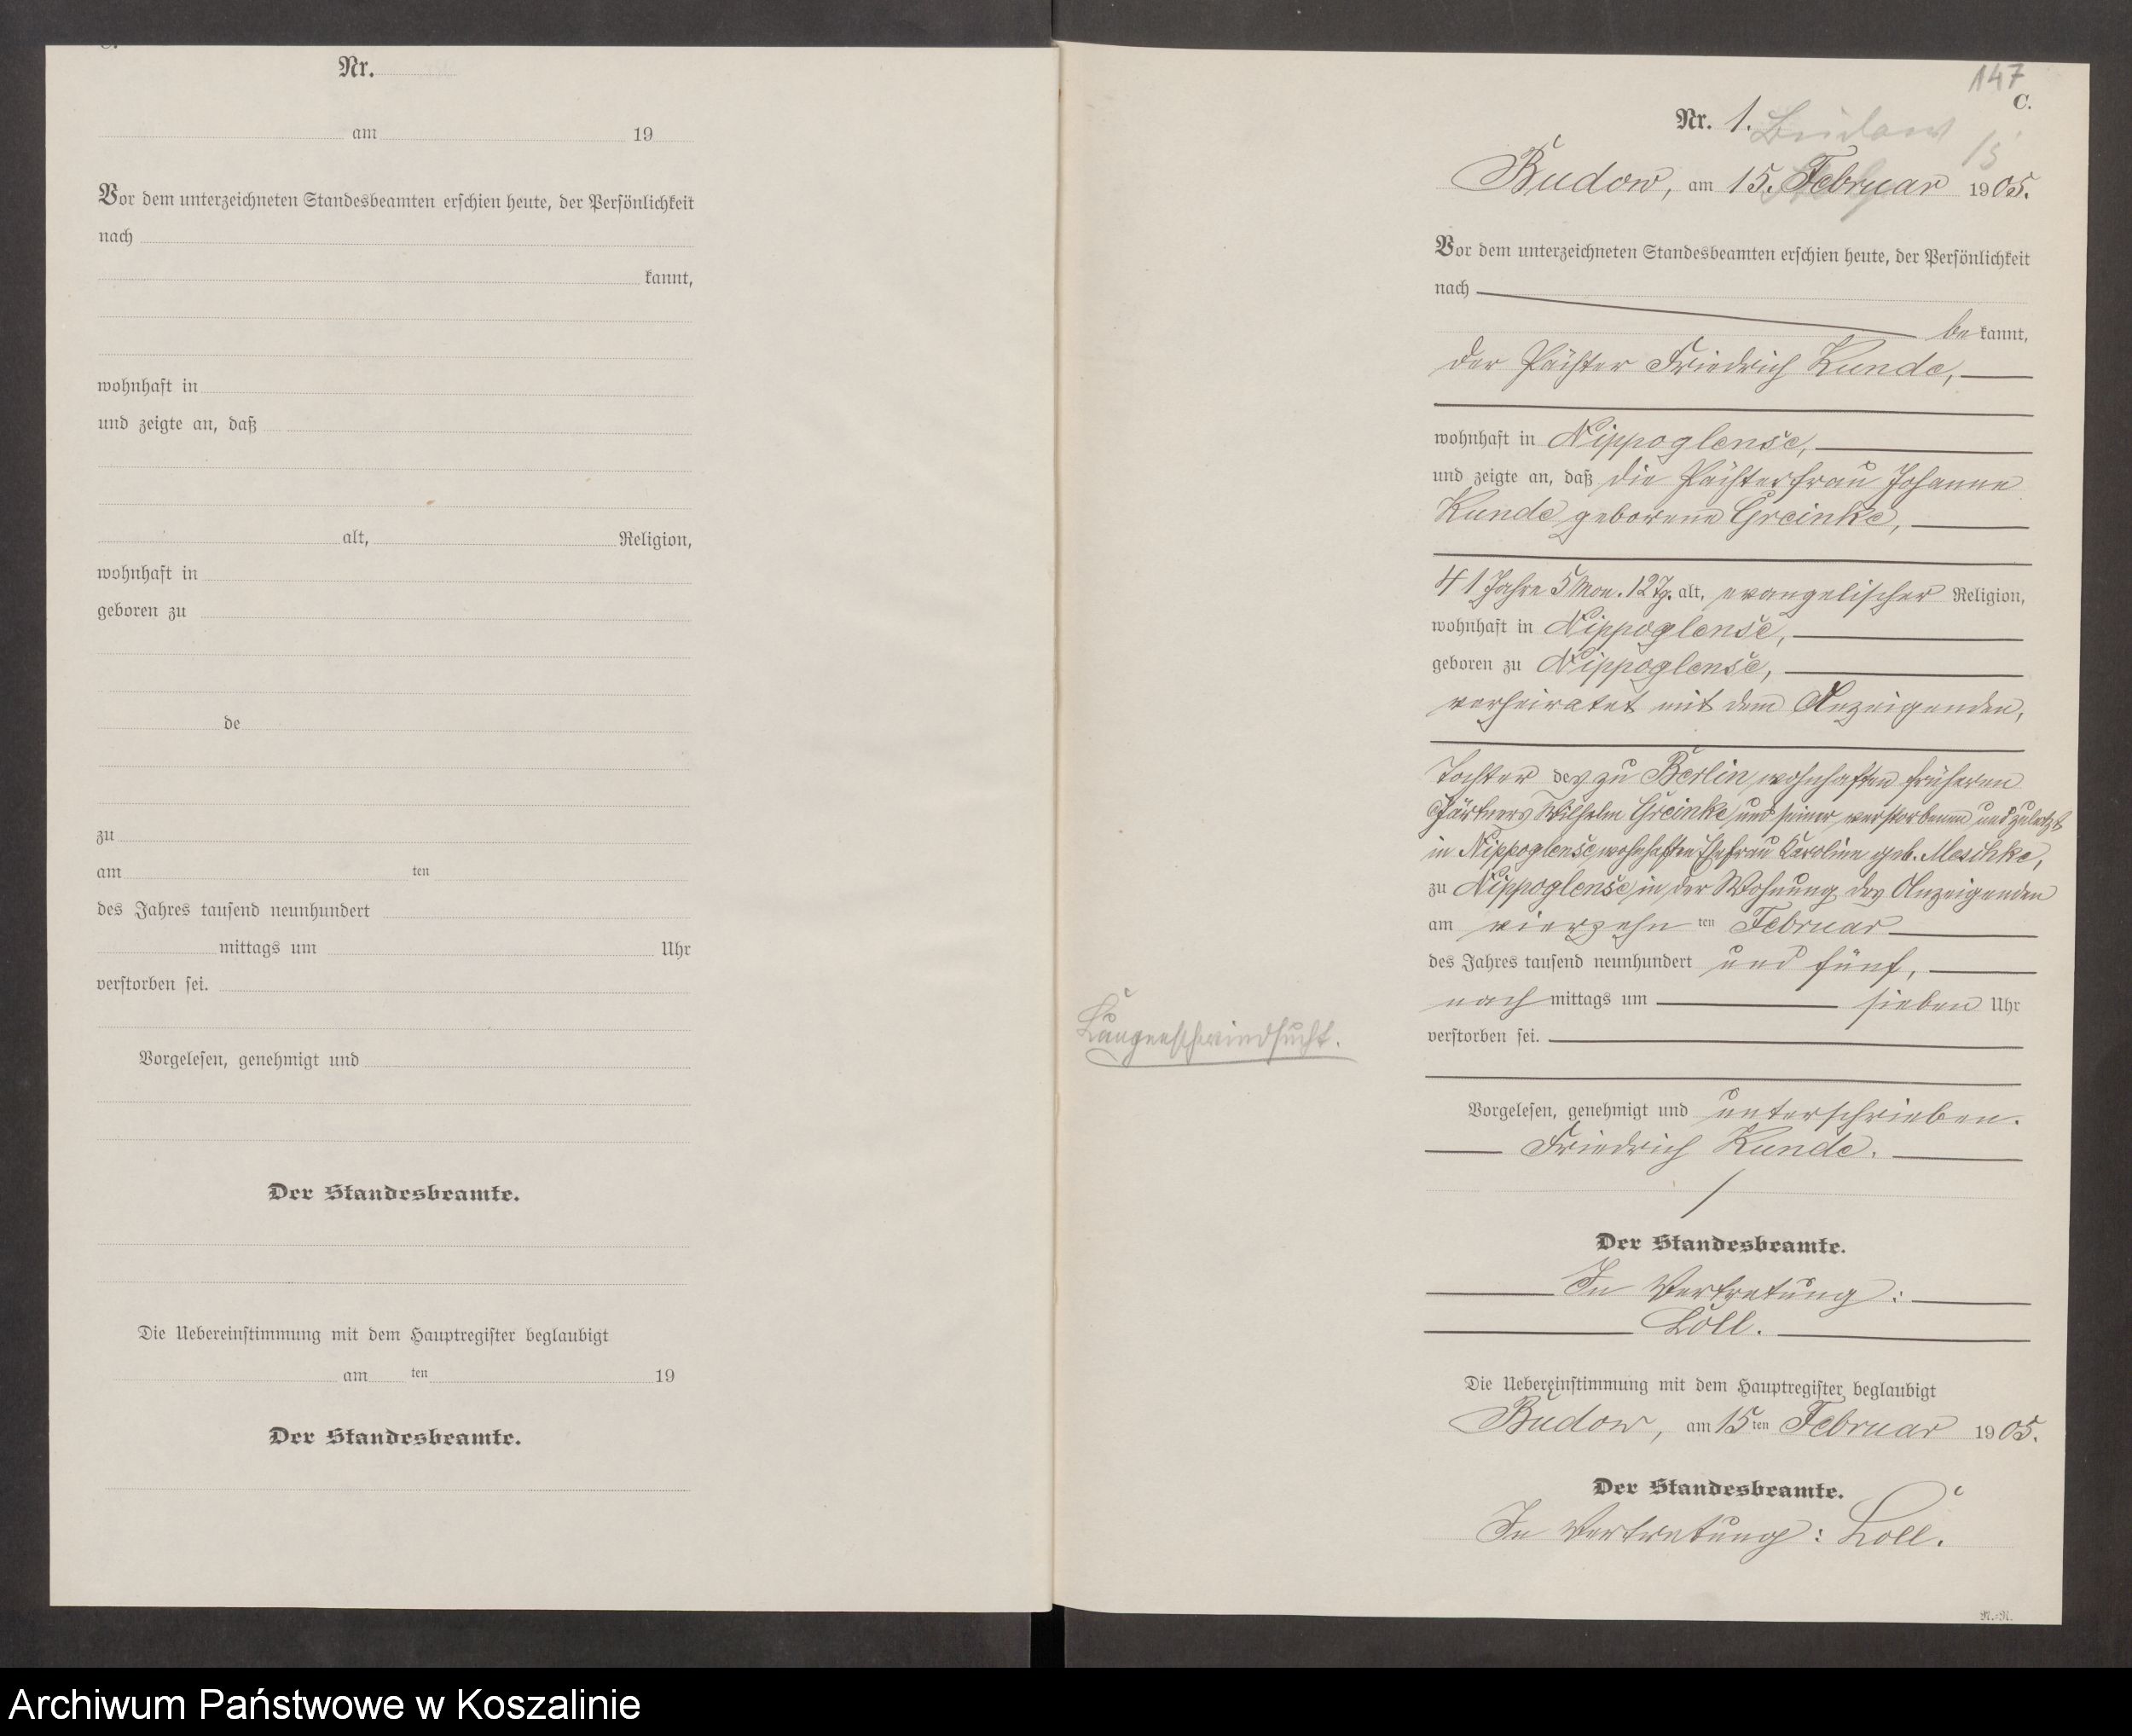 C.
Nr.
am 19
Vor dem unterzeichneten Standesbeamten erschien heute, der Persönlichkeit
nach
kannt,
wohnhaft in
und zeigte an, daß
alt, Religion,
wohnhaft in
geboren zu
de
zu
am ten
des Jahres tausend neunhundert
mittags um Uhr
verstorben sei.
Vorgelesen, genehmigt und
Der Standesbeamte.
Die Uebereinstimmung mit dem Hauptregister beglaubigt
am ten 19
Der Standesbeamte.
147
C.
Nr. 1. Budow
15
Budow, am 15. Februar 1905.
Vor dem unterzeichneten Standesbeamten erschien heute, der Persönlichkeit
nach
bekannt,
der Pächter Friedrich Kunde,
wohnhaft in Nippoglense,
und zeigte an, daß die Pächterfrau Johanne
Kunde geborene Greinke,
41 Jahre 5 Mon. 12 Tg. alt, evangelischer Religion,
wohnhaft in Nippoglense,
geboren zu Nippoglense,
verheiratet mit dem Anzeigenden,
Tochter des zu Berlin wohnhaften früheren
Gärtners Wilhelm Greinke und seiner verstorbenen und zuletzt
in Nippoglense wohnhaften Ehefrau Karoline geb. Meschke,
zu Nippoglense in der Wohnung des Anzeigenden
am vierzehnten Februar
des Jahres tausend neunhundert und fünf,
nachmittags um sieben Uhr
verstorben sei.
Lungenschwindsucht.
Vorgelesen, genehmigt und unterschrieben.
Friedrich Kunde.
Der Standesbeamte.
In Vertretung:
Loll.
Die Uebereinstimmung mit dem Hauptregister beglaubigt
Budow, am 15ten Februar 1905.
Der Standesbeamte.
In Vertretung: Loll.
Archiwum Państwowe w Koszalinie